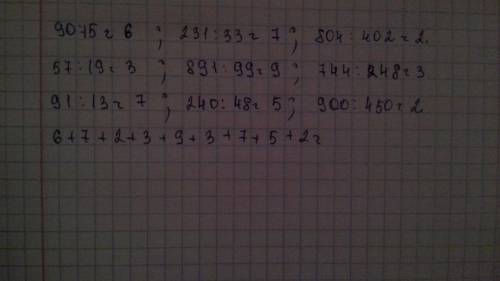 90:15 = 6 ; 231:33 = 7 ; 804:402 = 2.
57:19 = 3 ; 891:99 = 9 ; 744:248 = 3
91:13 = 7 ; 240:48 = 5 ; 900:450 = 2
6+7+2+3+9+3+7+5+2=